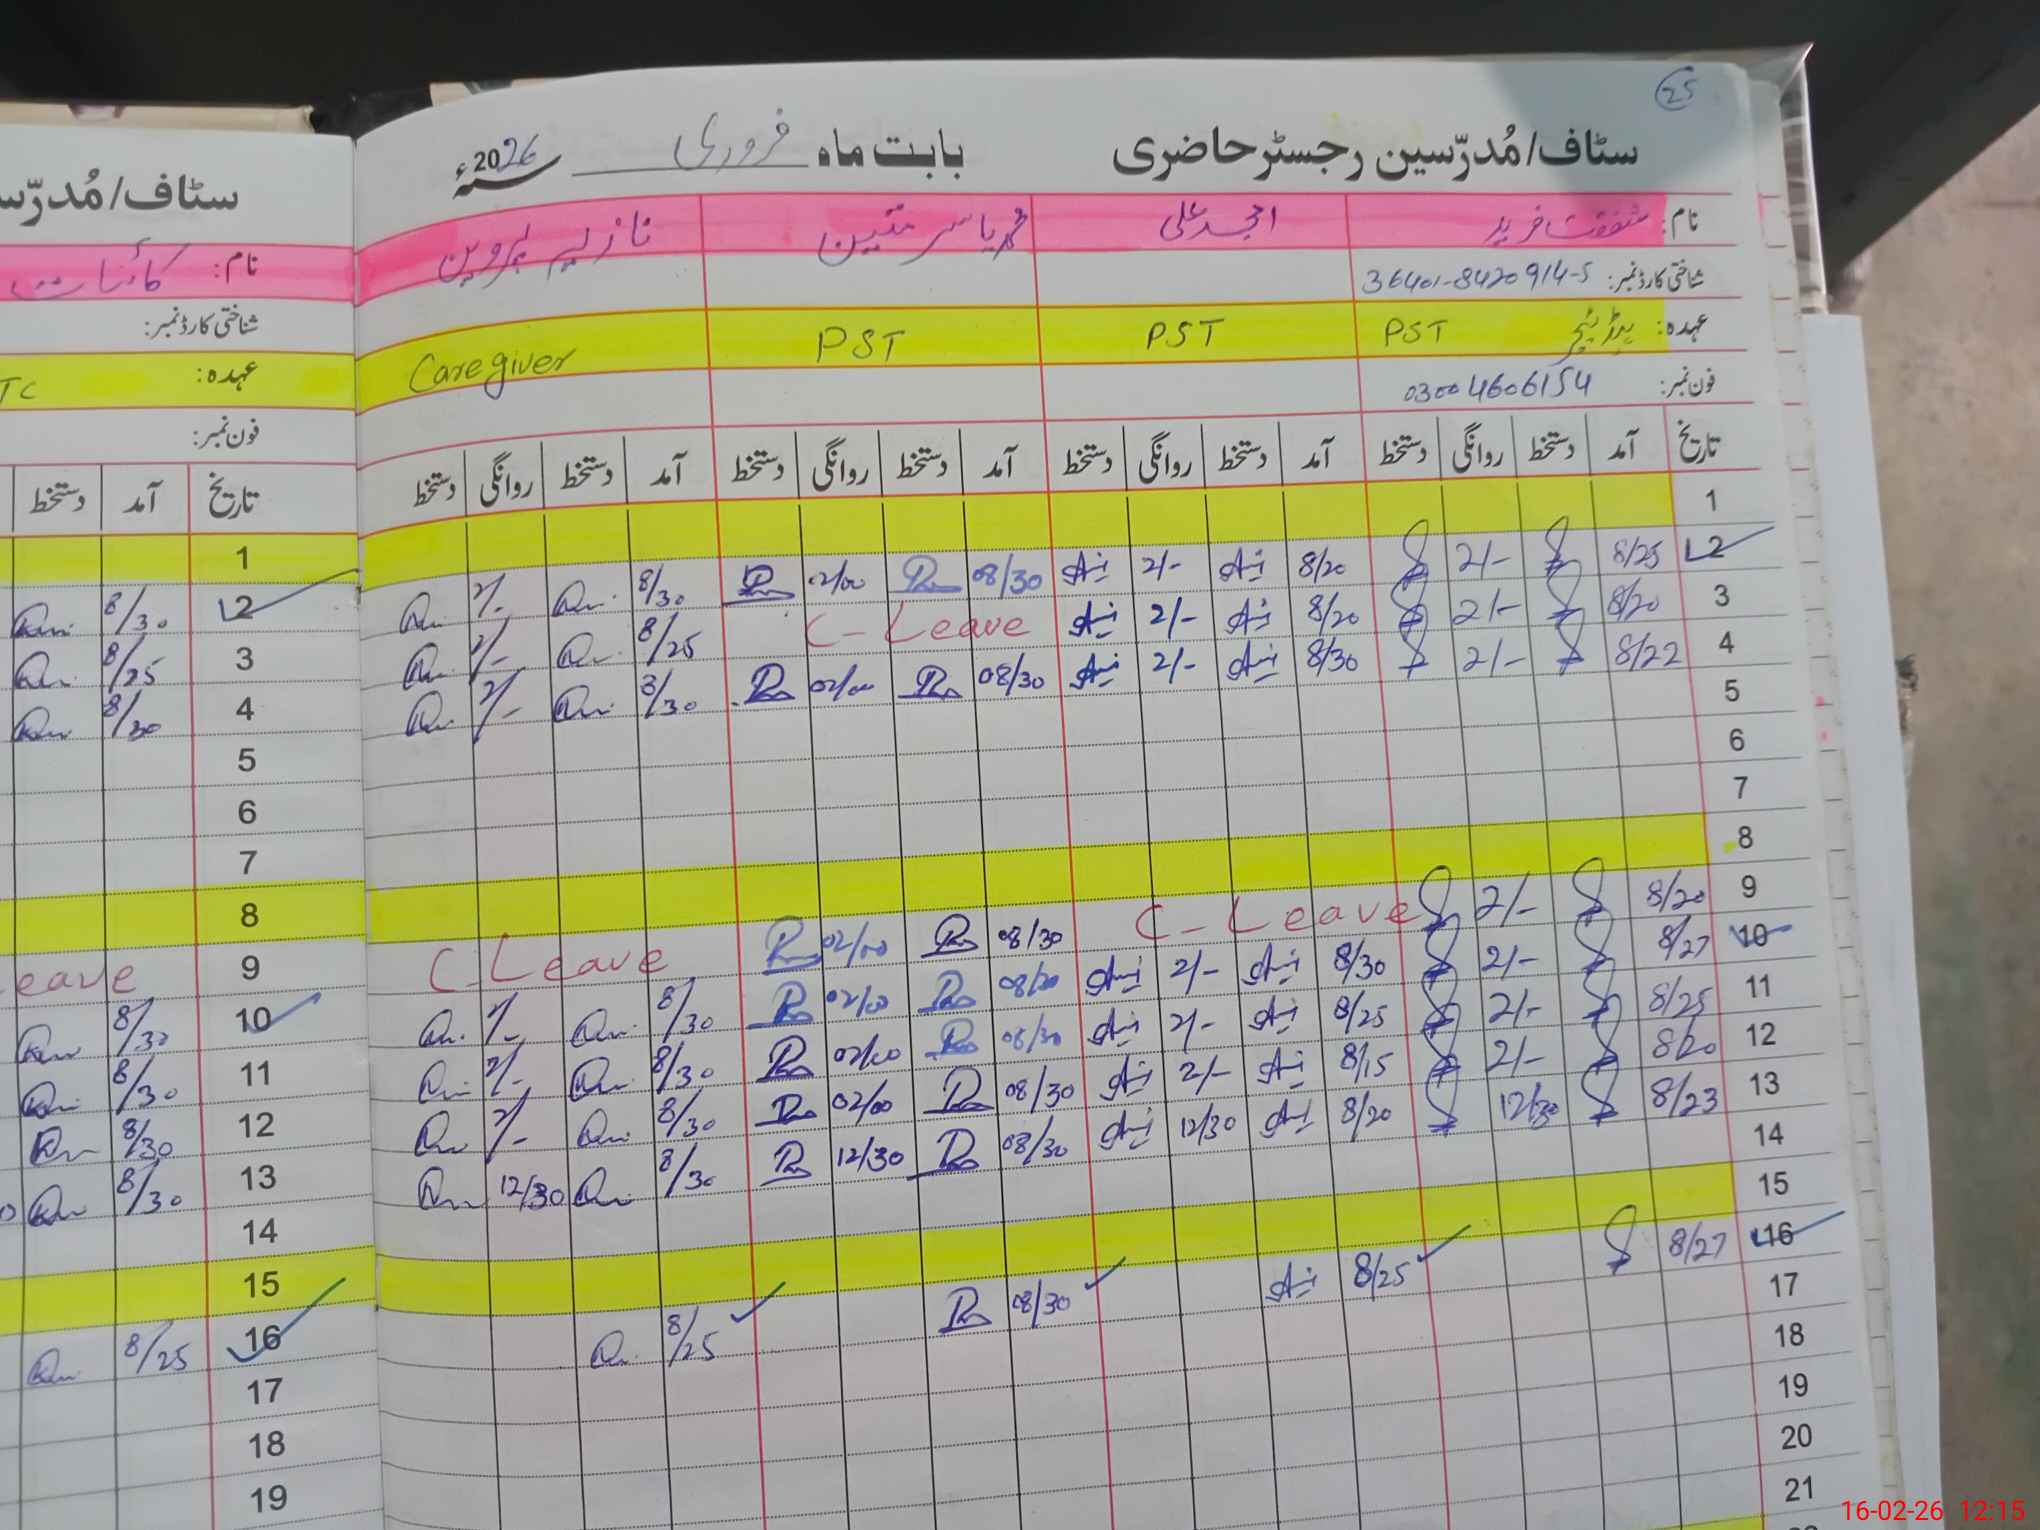 25
سٹاف/مُدرّسین رجسٹر حاضری بابت ماہ فروری سنہ 2026ء
نام: شفقت فرید امجد علی محمد یاسر متین نازلیہ پروین
شناختی کارڈ نمبر: 36401-8420914-5
عہدہ: ہیڈ ٹیچر PST PST PST Caregiver
فون نمبر: 03004606154
تاریخ آمد دستخط روانگی دستخط آمد دستخط روانگی دستخط آمد دستخط روانگی دستخط آمد دستخط روانگی دستخط
1
2 8/25 2/- 8/20 2/- 08/30 02/00 8/30 2/-
3 8/20 2/- 8/20 2/- C-Leave 8/25 2/-
4 8/22 2/- 8/30 2/- 08/30 02/00 8/30 2/-
5
6
7
8
9 8/20 2/- C-Leave 08/30 02/00 C-Leave
10 8/27 2/- 8/30 2/- 08/30 02/00 8/30 2/-
11 8/25 2/- 8/25 2/- 08/30 02/00 8/30 2/-
12 8/20 2/- 8/15 2/- 08/30 02/00 8/30 2/-
13 8/23 12/30 8/20 12/30 08/30 12/30 8/30 12/30
14
15
16 8/27 8/25 08/30 8/25
17
18
19
20
21
سٹاف/مُدرّس
نام: کائنات
شناختی کارڈ نمبر:
عہدہ: TC
فون نمبر:
تاریخ آمد دستخط
1
2 8/30
3 8/25
4 8/30
5
6
7
8
9 eave
10 8/30
11 8/30
12 8/30
13 8/30
14
15
16 8/25
17
18
19
16-02-26 12:15